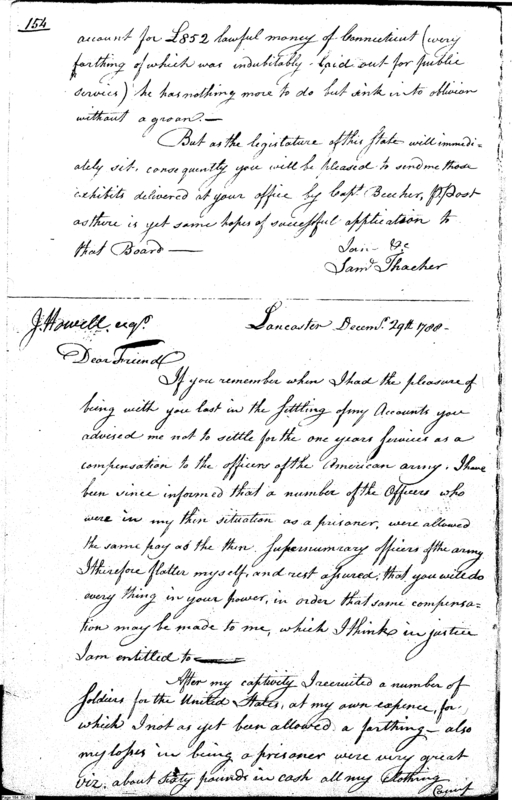 154
account for £852 lawful money of Connecticut (every
farthing of which was indubitably laid out for public
services) he has nothing more to do but sink into oblivion
without a groan.—
But as the legislature of this State will immedi-
ately sit, consequently you will be pleased to send me those
exhibits delivered at your office by Capt. Beecher, P Post
as there is yet some hopes of successful application to
that Board—
I am &c
Saml. Thacher
J. Howell, esqr.
Lancaster Decemr. 29th 1788-
Dear Friend
If you remember when I had the pleasure of
being with you last in the Settling of my Accounts you
advised me not to settle for the one years services as a
compensation to the officers of the American army. I have
been since informed that a number of the Officers who
were in my then situation as a prisoner, were allowed
the same pay as the then Supernumrary officers of the army
I therefore flatter myself, and rest assured, that you will do
every thing in your power, in order that some compensa-
tion may be made to me, which I think in justice
I am entitled to—
After my captivity I recruited a number of
Soldiers for the United States, at my own expence, for
which I not as yet been allowed a farthing - also
my losses in being a prisoner were very great
viz. about sixty pounds in cash all my Clothing